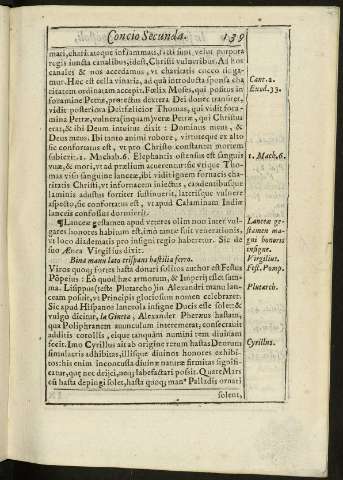 Concio Secunda. 139
mari, charitateque inflammari, facti sunt, velut purpura
regis iuncta canalibus, idest, Christi vulneribus. Ad hos
canales & nos accedamus, vt charitatis cocco tinga-
mur. Hæc est cella vinaria, ad quà introducta sponsa cha
ritatem ordinatam accepit. Fœlix Moses, qui positus in
foramine Petræ, protectus dextera Dei donec transiret,
vidit posteriora Dei: fœlicior Thomas, qui vidit fora-
mina Petræ, vulnera (inquam) veræ Petræ, qui Christus
erat, & ibi Deum intuitus dixit: Dominus meus, &
Deus meus. Ibi tanto animi robore, virtuteque ex alto
sic confortatus est, vt pro Christo constanter mortem
subierit. 1. Machab. 6. Elephantis ostensus est sanguis
vuæ, & mori, vt ad prælium acuerentur: sic vtique Tho-
mas visi sanguine lanceæ, ibi vidit ignem fornacis cha-
ritatis Christi, vt infornacem iniectus, candentibusque
laminis adustus fortiter sustinuerit, laterisque vulnere
aspecto, sic confortatus est, vt apud Calaminam Indiæ
lanceis confossus dormierit.
¶ Lanceæ gestamen apud veteres olim non inter vul-
gares honores habitum est, imò tantæ fuit venerationis,
vt loco diadematis pro insigni regio haberetur. Sic de
suo Ænea Virgilius dixit.
Bina manu lato crispans hastilia ferro.
Viros quoq; fortes hasta donari solitos author est Festus
Põpeius: Eò quod hæc armorum, & Imperij esset sum-
ma. Lisippus (teste Plutarcho) in Alexandri manu lan-
ceam posuit, vt Principis gloriosum nomen celebraret.
Sic apud Hispanos lanceola insigne Ducis esse solet: &
vulgò dicitur, la Gineta, Alexander Pheræus hastam,
qua Poliphranem auunculum interemerat, consecrauit
additis corollis, eique tanquàm numini rem diuinam
fecit. Imo Cyrillus ait ab origine rerum hastas Deorum
simulacris adhibitas, illisque diuinos honores exhibi-
tos: his enim inconcussa diuinæ naturæ firmitas signifi-
catur, quæ nec deijci, neq; labefactari possit. Quare Mars
cũ hasta depingi solet, hasta quoq; manus Palladis ornari
solent,
Cant. 2.
Exod. 33.
1. Mach. 6.
Lanceæ ge-
stamen ma
gni honoris
insigne.
Virgilius.
Fest. Pomp.
Plutarch.
Cyrillus.